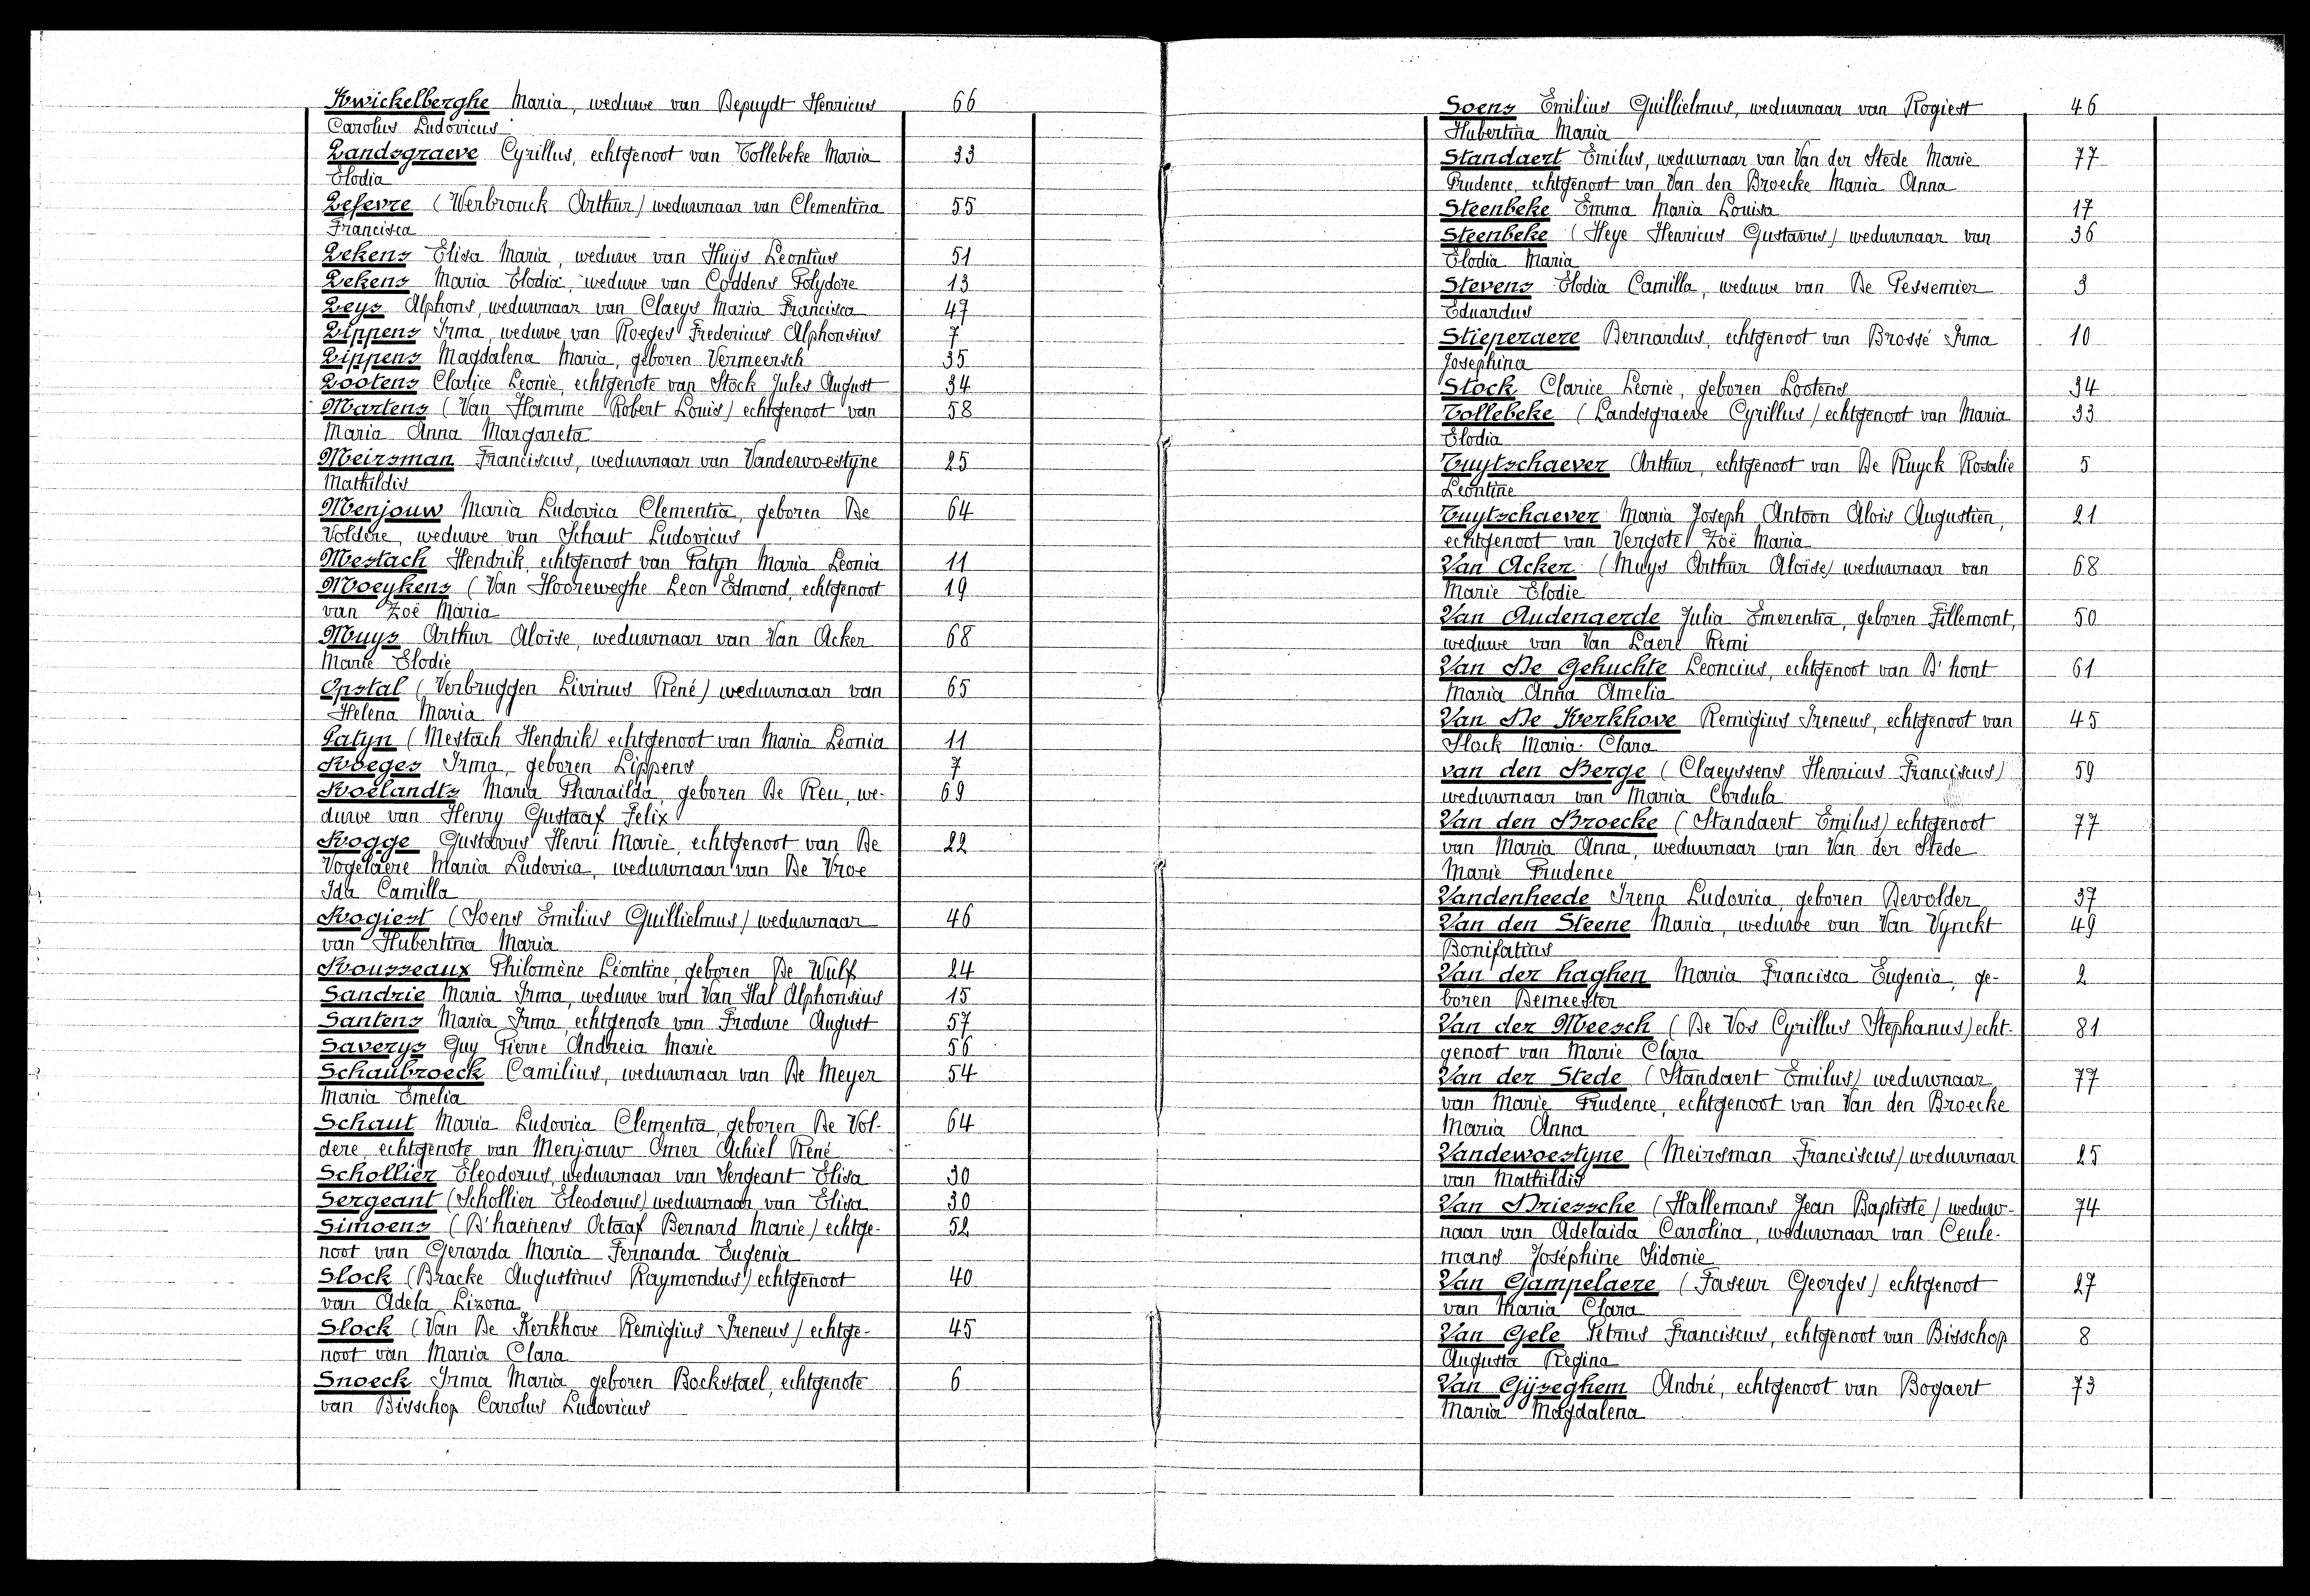 Kwickelberghe Maria, weduwe van Depuydt Henricus 66
Carolus Ludovicus
Landsgraeve Cyrillus, echtgenoot van Tollebeke Maria 33
Elodia
Lefevre (Werbrouck Arthur) weduwnaar van Clementina 55
Francisca
Lekens Elisa Maria, weduwe van Huijs Leontius 51
Lekens Maria Elodia, weduwe van Coddens Polydore 13
Leys Alphons, weduwnaar van Claeys Maria Francisca 47
Lippens Irma, weduwe van Roeges Fredericus Alphonsius 7
Lippens Magdalena Maria, geboren Vermeersch 35
Lootens Clarice Leonie, echtgenote van Stock Jules August 34
Martens (Van Hamme Robert Louis) echtgenoot van 58
Maria Anna Margareta
Meirsman Franciscus, weduwnaar van Vandewoestyne 25
Mathildis
Menjouw Maria Ludovica Clementia, geboren De 64
Voldere, weduwe van Schaut Ludovicus
Mestach Hendrik, echtgenoot van Patyn Maria Leonia 11
Moeykens (Van Hooreweghe Leon Edmond, echtgenoot 19
van Zoë Maria
Muys Arthur Aloise, weduwnaar van Van Acker 68
Marie Elodie
Opstal (Verbruggen Livinus René) weduwnaar van 65
Helena Maria
Patyn (Mestach Hendrik) echtgenoot van Maria Leonia 11
Roeges Irma, geboren Lippens 7
Roelandts Maria Pharaïlda, geboren De Reu, we- 69
duwe van Henry Gustaaf Felix
Rogge Gustavus Henri Marie, echtgenoot van De 22
Vogelaere Maria Ludovica, weduwnaar van De Vroe
Ida Camilla
Rogiest (Soens Emilius Guillielmus) weduwnaar 46
van Hubertina Maria
Rousseaux Philomène Léontine, geboren De Wulf 24
Sandrie Maria Irma, weduwe van Van Hal Alphonsius 15
Santens Maria Irma, echtgenote van Frodure August 57
Saverys Guy Pierre Andreia Marie 56
Schaubroeck Camilius, weduwnaar van De Meyer 54
Maria Emelia
Schaut Maria Ludovica Clementia, geboren De Vol- 64
dere, echtgenote van Menjouw Omer Achiel René
Schollier Eleodorus, weduwnaar van Sergeant Elisa 30
Sergeant (Schollier Eleodorus) weduwnaar van Elisa 30
Simoens (D'haenens Octaaf Bernard Marie) echtge- 52
noot van Gerarda Maria Fernanda Eugenia
Slock (Bracke Augustinus Raymondus) echtgenoot 40
van Adela Lizona
Slock (Van De Kerkhove Remigius Ireneus) echtge- 45
noot van Maria Clara
Snoeck Irma Maria, geboren Bockstael, echtgenote 6
van Bisschop Carolus Ludovicus
Soens Emilius Guillielmus, weduwnaar van Rogiest 46
Hubertina Maria
Standaert Emilus, weduwnaar van Van der Stede Marie 77
Prudence, echtgenoot van Van den Broecke Maria Anna
Steenbeke Emma Maria Louisa 17
Steenbeke (Heye Henricus Gustavus) weduwnaar van 36
Elodia Maria
Stevens Elodia Camilla, weduwe van De Pessemier 3
Eduardus
Stieperaere Bernardus, echtgenoot van Brossé Irma 10
Josephina
Stock Clarice Leonie, geboren Lootens 34
Tollebeke (Landsgraeve Cyrillus) echtgenoot van Maria 33
Elodia
Tuytschaever Arthur, echtgenoot van De Ruyck Rosalie 5
Leontine
Tuytschaever Maria Joseph Antoon Alois Augustien, 21
echtgenoot van Vergote Zoë Maria
Van Acker (Muys Arthur Aloise) weduwnaar van 68
Marie Elodie
Van Audenaerde Julia Emerentia, geboren Fillemont, 50
weduwe van Van Laere Remi
Van De Gehuchte Leoncius, echtgenoot van D'hont 61
Maria Anna Amelia
Van De Kerkhove Remigius Ireneus, echtgenoot van 45
Slock Maria Clara
van den Berge (Claeyssens Henricus Franciscus) 59
weduwnaar van Maria Cordula
Van den Broecke (Standaert Emilus) echtgenoot 77
van Maria Anna, weduwnaar van Van der Stede
Marie Prudence
Vandenheede Irena Ludovica, geboren Devolder 37
Van den Steene Maria, weduwe van Van Vynckt 49
Bonifatius
Van der haghen Maria Francisca Eugenia, ge- 2
boren Demeester
Van der Meesch (De Vos Cyrillus Stephanus) echt- 81
genoot van Marie Clara
Van der Stede (Standaert Emilus) weduwnaar 77
van Marie Prudence, echtgenoot van Van den Broecke
Maria Anna
Vandewoestyne (Meirsman Franciscus) weduwnaar 25
van Mathildis
Van Driessche (Hallemans Jean Baptiste) weduw- 74
naar van Adelaida Carolina, weduwnaar van Ceule-
mans Joséphine Sidonie
Van Gampelaere (Paseur Georges) echtgenoot 27
van Maria Clara
Van Gele Petrus Franciscus, echtgenoot van Bisschop 8
Augusta Regina
Van Gijseghem André, echtgenoot van Bogaert 73
Maria Magdalena